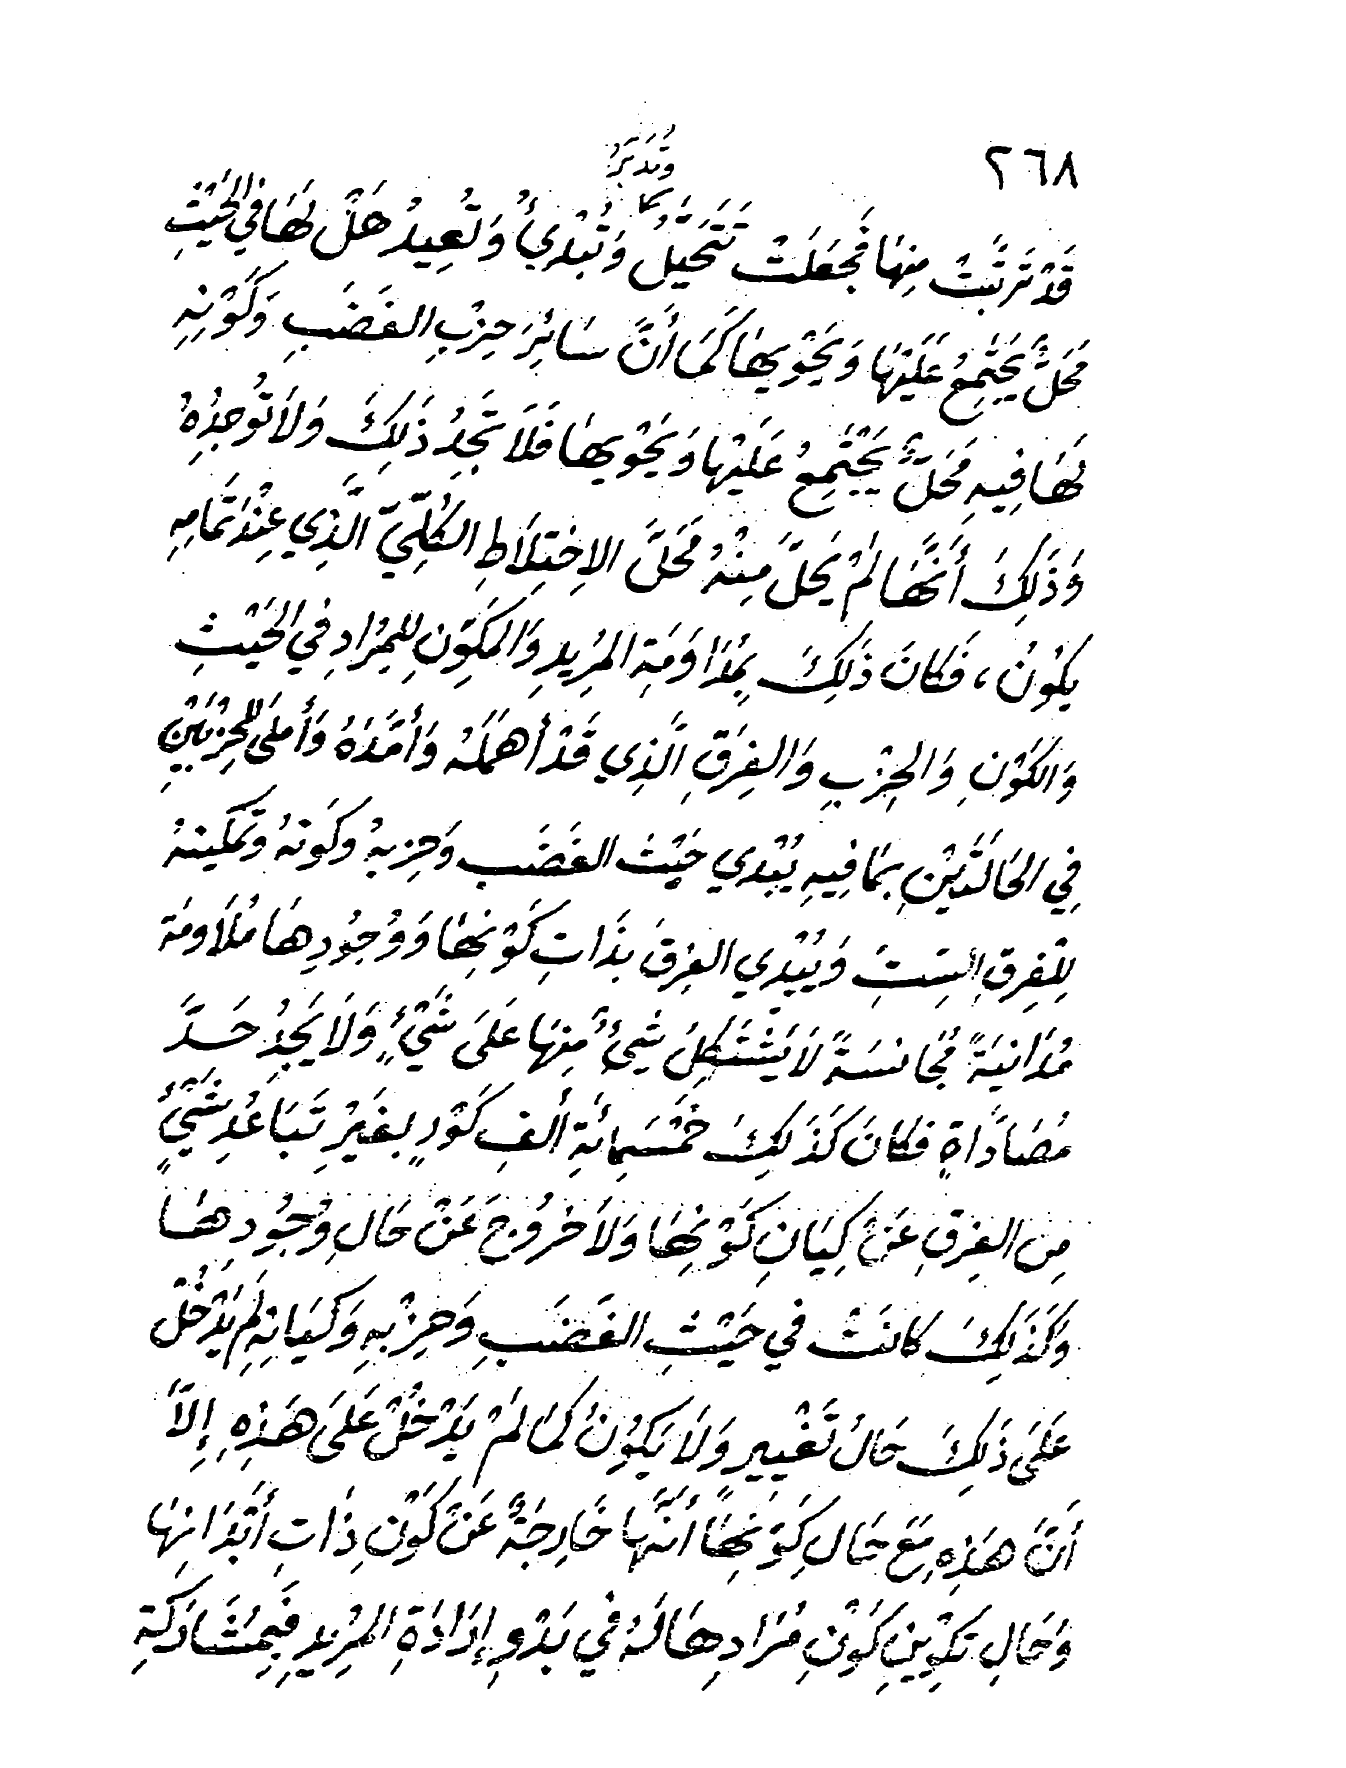 ٢٦٨
وَتُدَبِّرُ
قَدْ تَرَتَّبَتْ مِنْهَا فَجَعَلَتْ تَتَحَيَّلُ وَتُبْدِيُ وَتُعِيدُ هَلْ لَهَا فِي الحَيْثِ
مَحَلٌّ يَجْتَمِعُ عَلَيْهَا وَيَحْوِيهَا كَمَا أَنَّ سَائِرَ حِزْبِ الغَضَبِ وَكَوْنِهِ
لَهَا فِيهِ مَحَلٌّ يَجْتَمِعُ عَلَيْهَا وَيَحْوِيهَا فَلَا تَجِدُ ذَلِكَ وَلَا تُوجِدُهُ
وَذَلِكَ أَنَّهَا لَمْ يَحِلَّ مِنْهُ مَحَلَّ الاِخْتِلَاطِ الكُلِّيِّ الَّذِي عِنْدَ تَمَامِهِ
يَكُونُ، فَكَانَ ذَلِكَ بِمُدَاوَمَةِ المُرِيدِ وَالمُكَوِّنِ لِلمُرَادِ فِي الحَيْثِ
وَالكَوْنِ وَالحِزْبِ وَالفِرَقِ الَّذِي قَدْ أَهْمَلَهُ وَأَمَّدَهُ وَأَمْلَى لِلْحِزْبَيْنِ
فِي الحَالَتَيْنِ بِمَا فِيهِ يُبْدِي حَيْثَ الغَضَبِ وَحِزْبِهُ وَكَوْنَهُ وَتَمْكِينَهُ
لِلْفِرَقِ السِتِّ وَيُبْدِي الفِرَقَ بِذَاتِ كَوْنِهَا وَوُجُودِهَا مُلَاوَمَة
مُدَانِيَةً مُجَانَسَةً لَا يَشْتَكِلُ شَيْءٌ مِنْهَا عَلَى شَيْءٍ وَلَا يَجِدُ حَدَّ
مُضَادَّاةٍ فَكَانَ كَذَلِكَ خَمْسَمِائَةِ أَلْفِ كَوْرٍ بِغَيْرِ تَبَاعُدِ شَيْءٍ
مِنَ الفِرَقِ عَنْ كِيَانِ كَوْنِهَا وَلَا خُرُوجَ عَنْ حَالِ وُجُودِهَا
وَكَذَلِكَ كَانَتْ فِي حَيْثِ الغَضَبِ وَحِزْبِهِ وَكِيَانِهِ لَمْ يَدْخُلْ
عَلَى ذَلِكَ حَالُ تَغْيِيرٍ وَلَا يَكُونُ كَمَا لَمْ يَدْخُلْ عَلَى هَذِهِ إِلَّا
أَنَّ هَذِهِ مَعَ حَالِ كَوْنِهَا أَنَّهَا خَارِجَةٌ عَنْ كَوْنِ ذَاتِ أَبْدَانِهَا
وَحَالِ تَكْوِينِ كَوْنِ مُرَادِهَا لَهُ فِي بَدْوِ إِرَادَةِ المُرِيدِ فَبِمُشَارَكَةِ